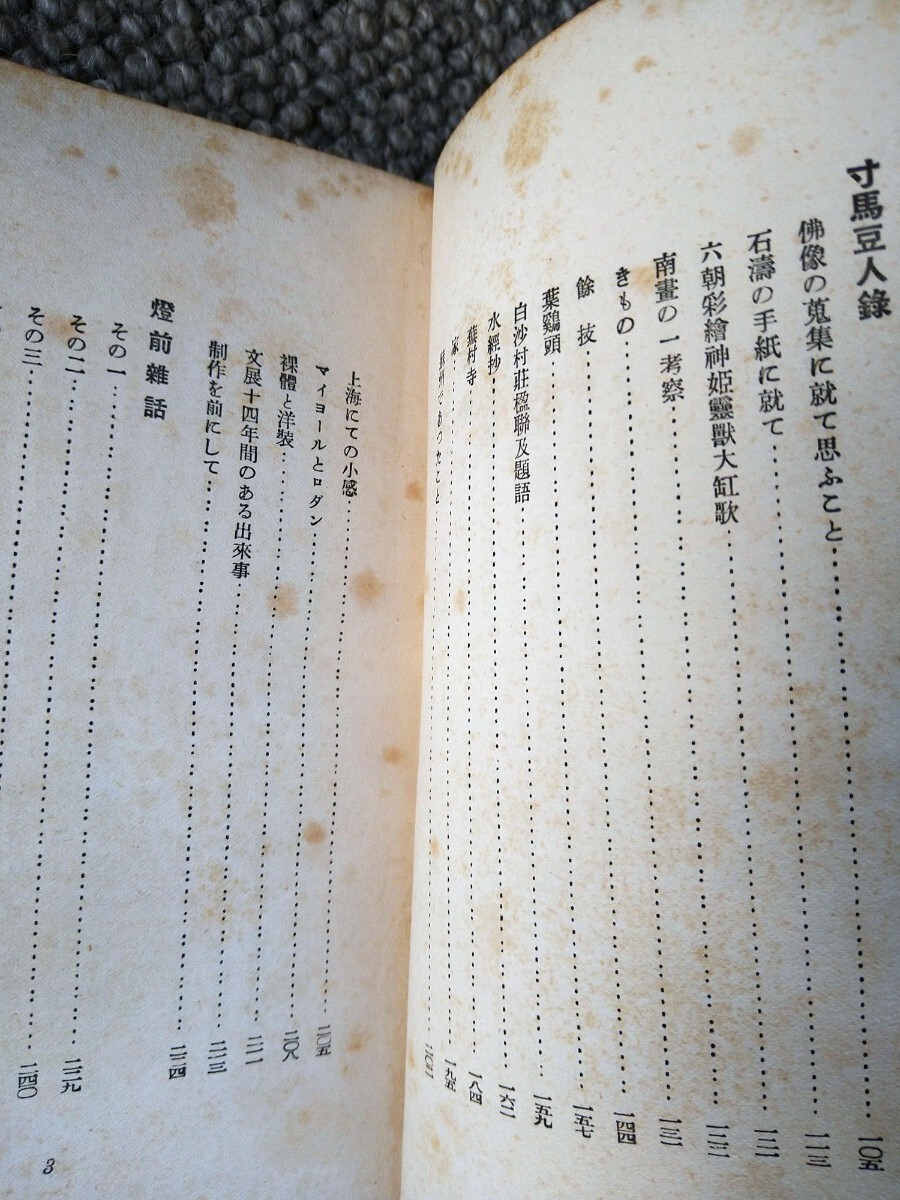 寸馬豆人錄
佛像の蒐集に就て思ふこと 一〇五
石濤の手紙に就て 一一三
六朝彩繪神姫靈獸大缸歌
南畫の一考察
きもの 一三一
餘技 一四四
葉鷄頭 一五七
白沙村莊楹聯及題語 一五九
水經抄 一六二
蕪村寺 一八四
家 一九五
蘇州であつせこと
上海にての小感 二〇五
マイヨールとロダン 二〇八
裸體と洋裝 二一一
文展十四年間のある出來事
制作を前にして
燈前雜話
その一 二二九
その二 二四〇
その三
3